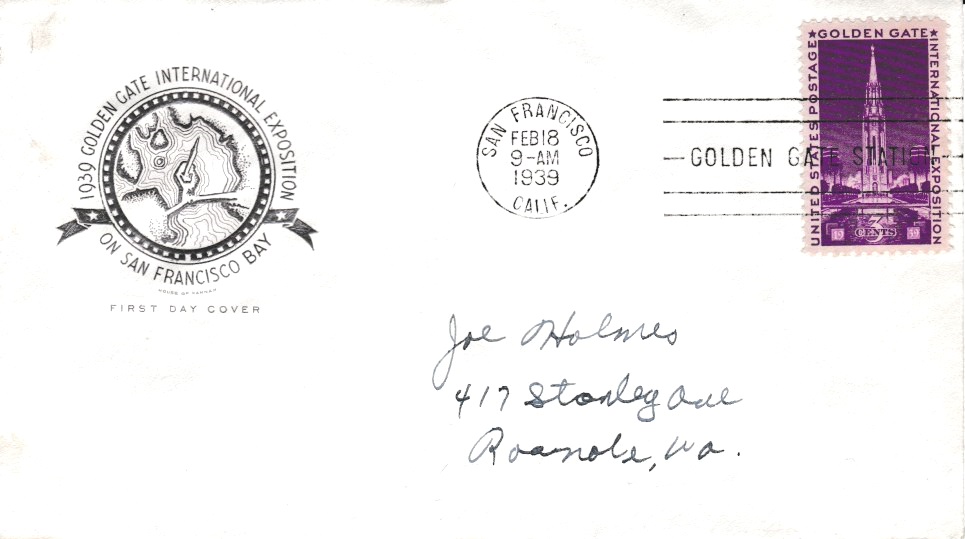 1939 GOLDEN GATE INTERNATIONAL EXPOSITION
ON SAN FRANCISCO BAY
HOUSE OF FARNAM
FIRST DAY COVER
SAN FRANCISCO
FEB 18
9-AM
1939
CALIF.
GOLDEN GATE STATION
UNITED STATES POSTAGE
GOLDEN GATE
INTERNATIONAL EXPOSITION
19 39
3
CENTS
Joe Holmes
417 Stanley Ave
Roanoke, Va.